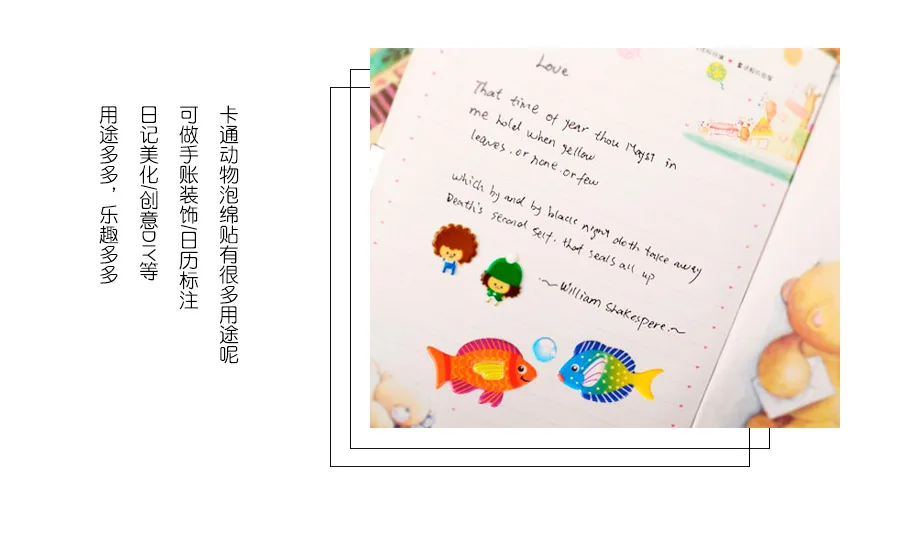 卡通动物泡绵贴有很多用途呢
可做手账装饰/日历标注
日记美化/创意DIY等
用途多多，乐趣多多
Love
That time of year thou Mayst in
me hold when yellow
leaves . or none . or few
which by and by black night doth take away
Death's second self. that seals all up
~ William Shakespere. ~